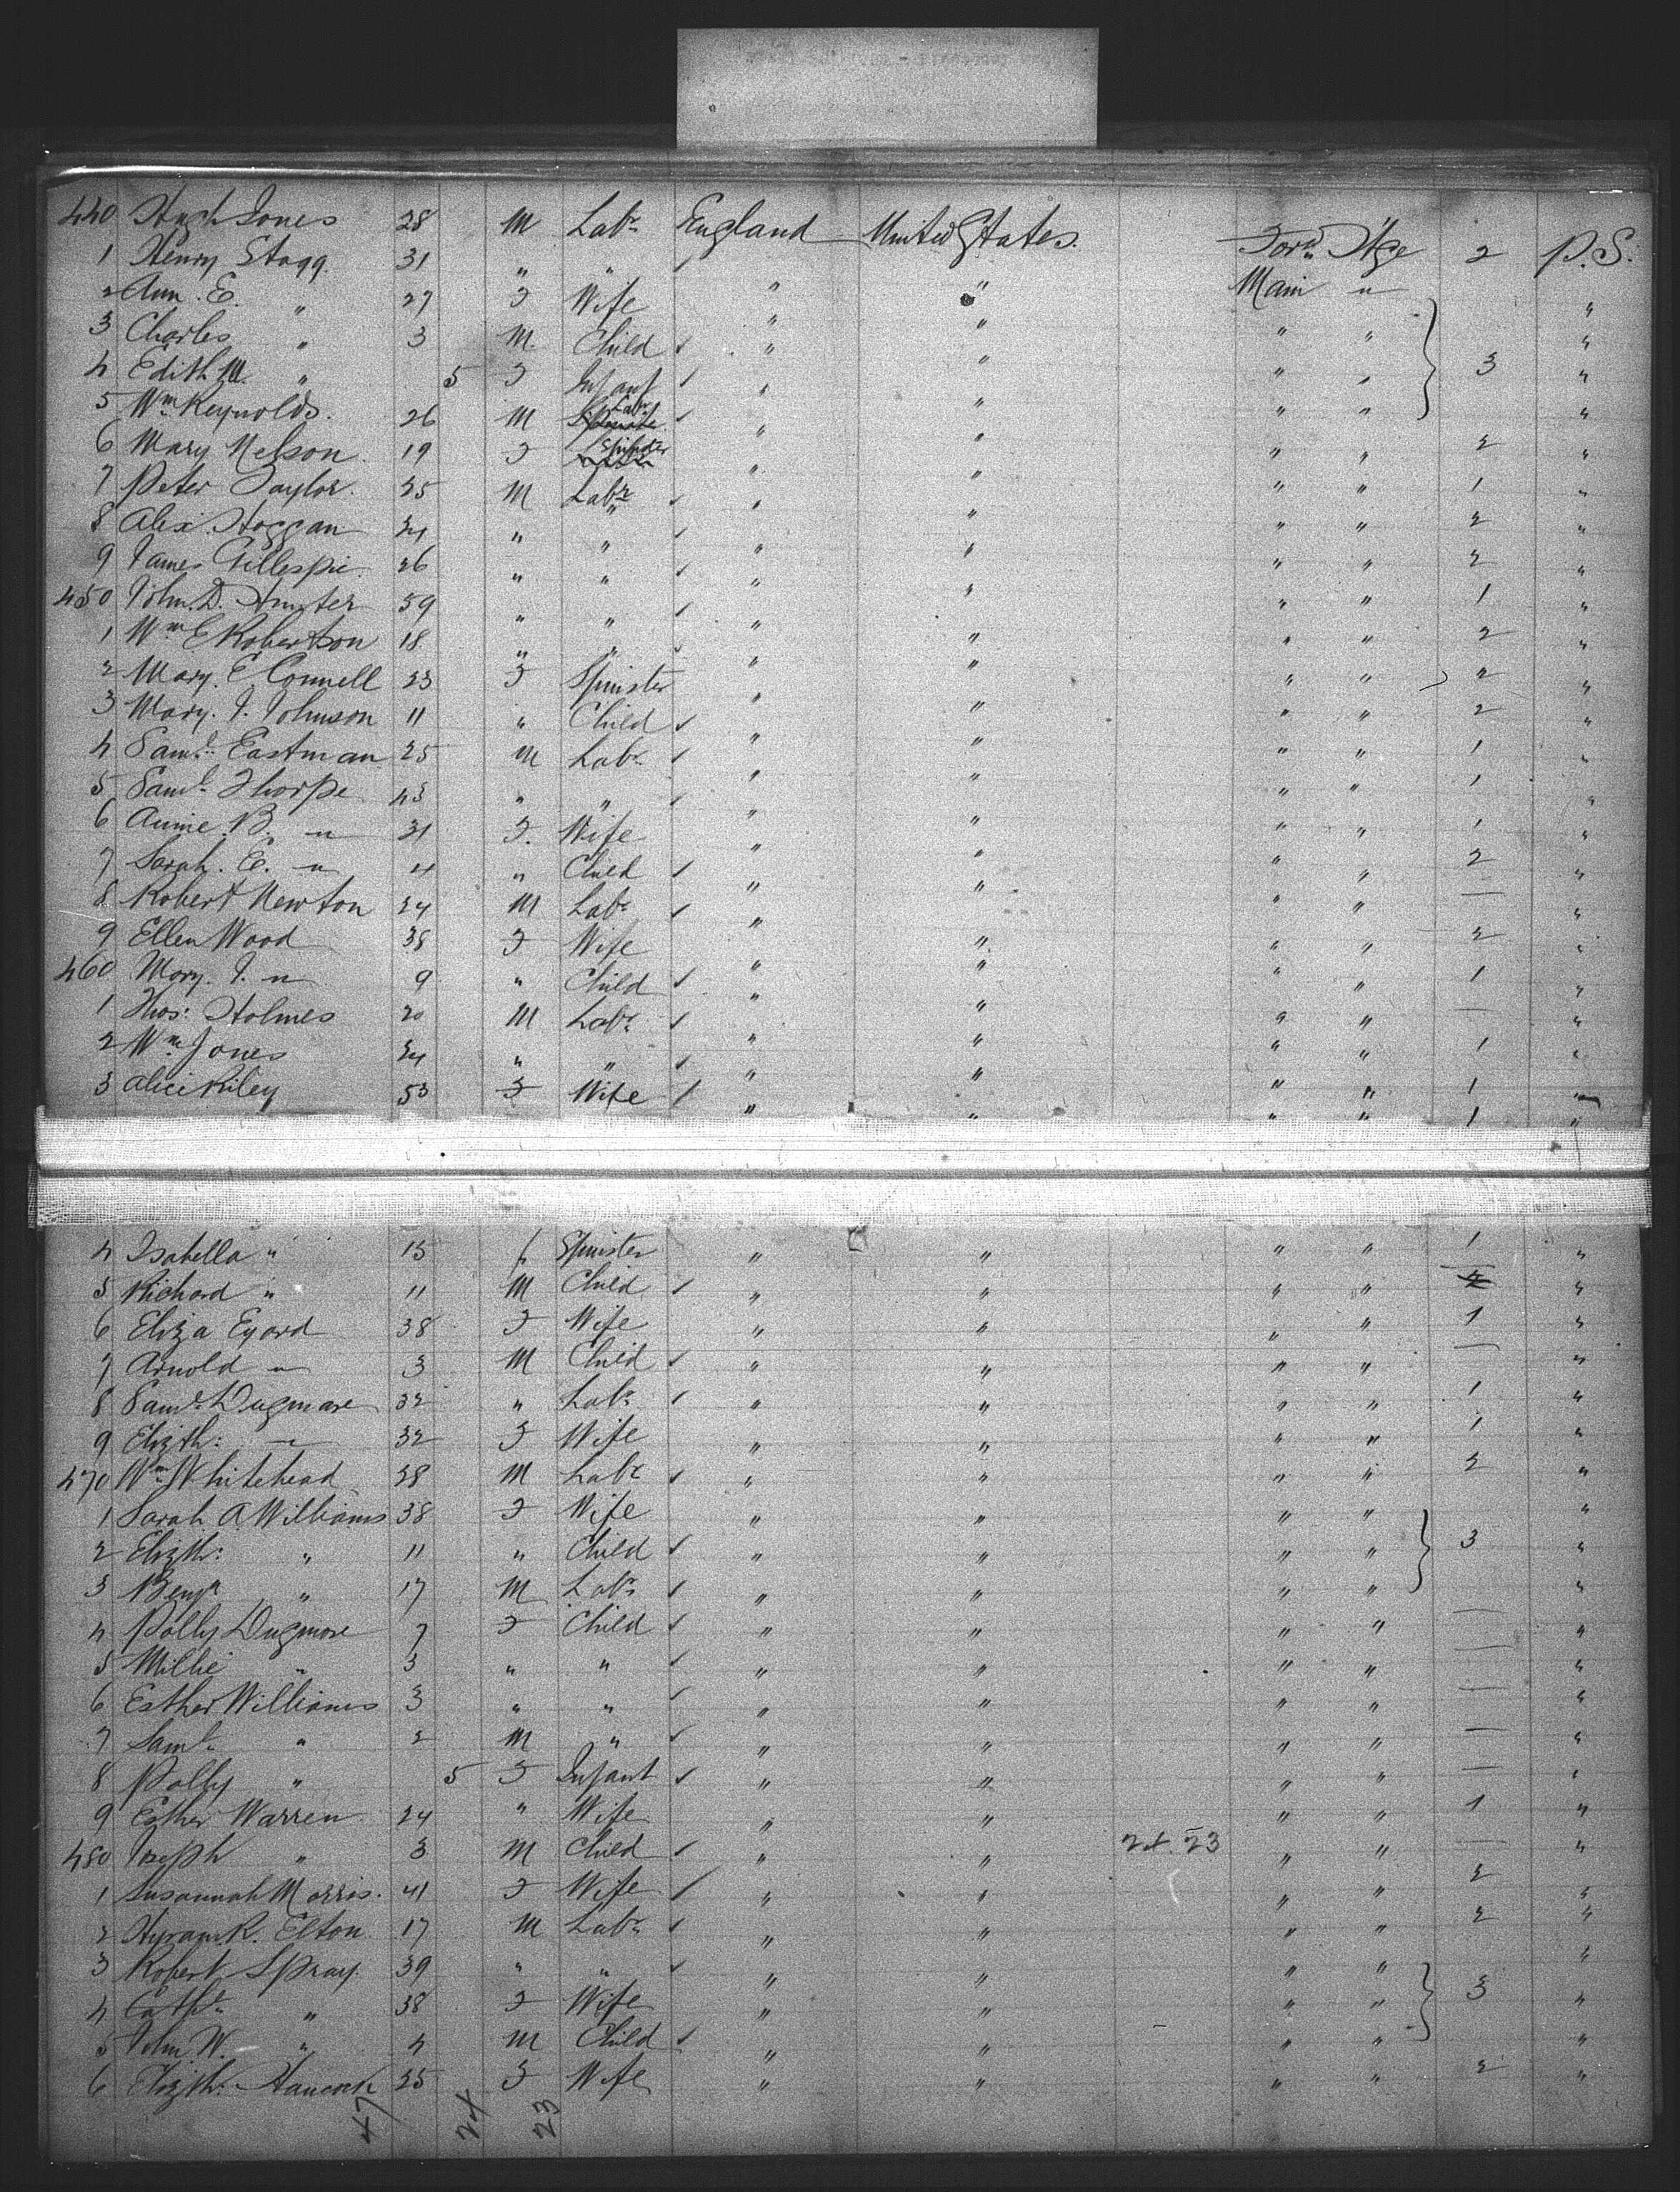 440 Hugh Jones 28 M Labr England United States Forw Stge 2 P.S.
1 Henry Stagg 31 " " " " Main " "
2 Ann. E. " 27 F Wife " " " " "
3 Charles " 3 M. Child " " " " 3 "
4 Edith M. " 5 F Infant " " " " "
5 Wm Reynolds. 26 M Labr " " " " 2 "
6 Mary Nelson 19 F Spinster " " " " 1 "
7 Peter Taylor. 25 M Labr " " " " 2 "
8 Alex. Hoggan 24 " " " " " " 2 "
9 James Gillespie 26 " " " " " " 1 "
450 John. D. Hunter 59 " " " " " " 2 "
1 Wm E Robertson 18 " " " " " " 2 "
2 Mary. E Connell 23 F Spinster " " " " 2 "
3 Mary. J. Johnson 11 " Child " " " " 1 "
4 Saml. Eastman 25 M Labr " " " " 1 "
5 Saml. Thorpe 43 " " " " " " 1 "
6 Annie. B. " 31 F. Wife " " " " 2 "
7 Sarah. E. " 4 " Child " " " " — "
8 Robert Newton 24 M Labr " " " " 2 "
9 Ellen Wood 38 F Wife " " " " 1 "
460 Mary. J. " 9 " Child " " " " — "
1 Thos: Holmes 20 M Labr " " " " 1 "
2 Wm Jones 24 " " " " " " 1 "
3 Alice Riley 53 F Wife " " " " 1 "
4 Isabella " 15 f Spinster " " " " 1 "
5 Richard " 11 M Child " " " " "
6 Eliza Eyard 38 F Wife " " " " 1 "
7 Arnold " 3 M Child " " " " — "
8 Saml. Dugmore 32 " Labr " " " " 1 "
9 Elizth: " 32 F Wife " " " " 1 "
470 Wm Whitehead 38 M Labr " " " " 2 "
1 Sarah A Williams 38 F Wife " " " " "
2 Elizth: " 11 " Child " " " " 3 "
3 Benjn " 17 M Labr " " " " "
4 Polly Dugmore 7 F Child " " " " — "
5 Millie " 3 " " " " " " — "
6 Esther Williams 3 " " " " " " — "
7 Saml. " 2 M " " " " " — "
8 Polly " 5 F Infant " " " " — "
9 Esther Warren 24 " Wife " " " " 1 "
480 Joseph " 3 M Child " " 24. 23 " " — "
1 Susannah Morris. 41 F Wife " " " " 2 "
2 Hyram R. Elton 17 M Labr " " " " 2 "
3 Robert Spray. 39 " " " " " " "
4 Cathe " 38 F Wife " " " " 3 "
5 John W. " 4 M Child " " " " "
6 Elizth: Hancock 25 F Wife " " " " 2 "
47 24 23